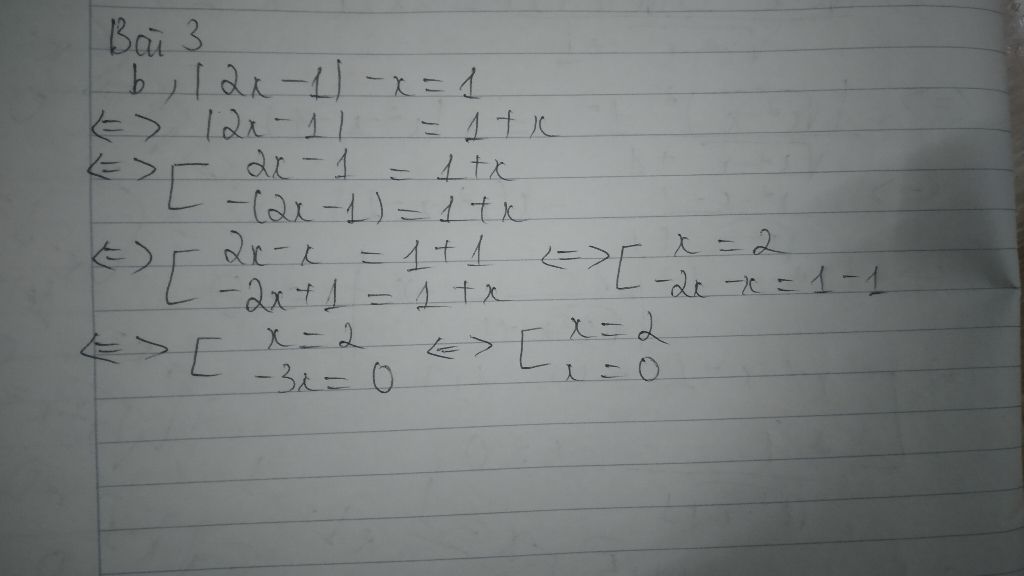 Bài 3
b, |2x - 1| - x = 1
<=> |2x - 1| = 1 + x
<=> [ 2x - 1 = 1 + x
-(2x - 1) = 1 + x
<=> [ 2x - x = 1 + 1 <=> [ x = 2
-2x + 1 = 1 + x -2x - x = 1 - 1
<=> [ x = 2 <=> [ x = 2
-3x = 0 x = 0